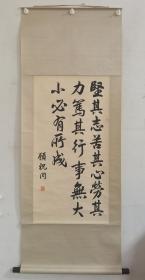 堅其志苦其心勞其
力篤其行事無大
小必有所成
顧祝同